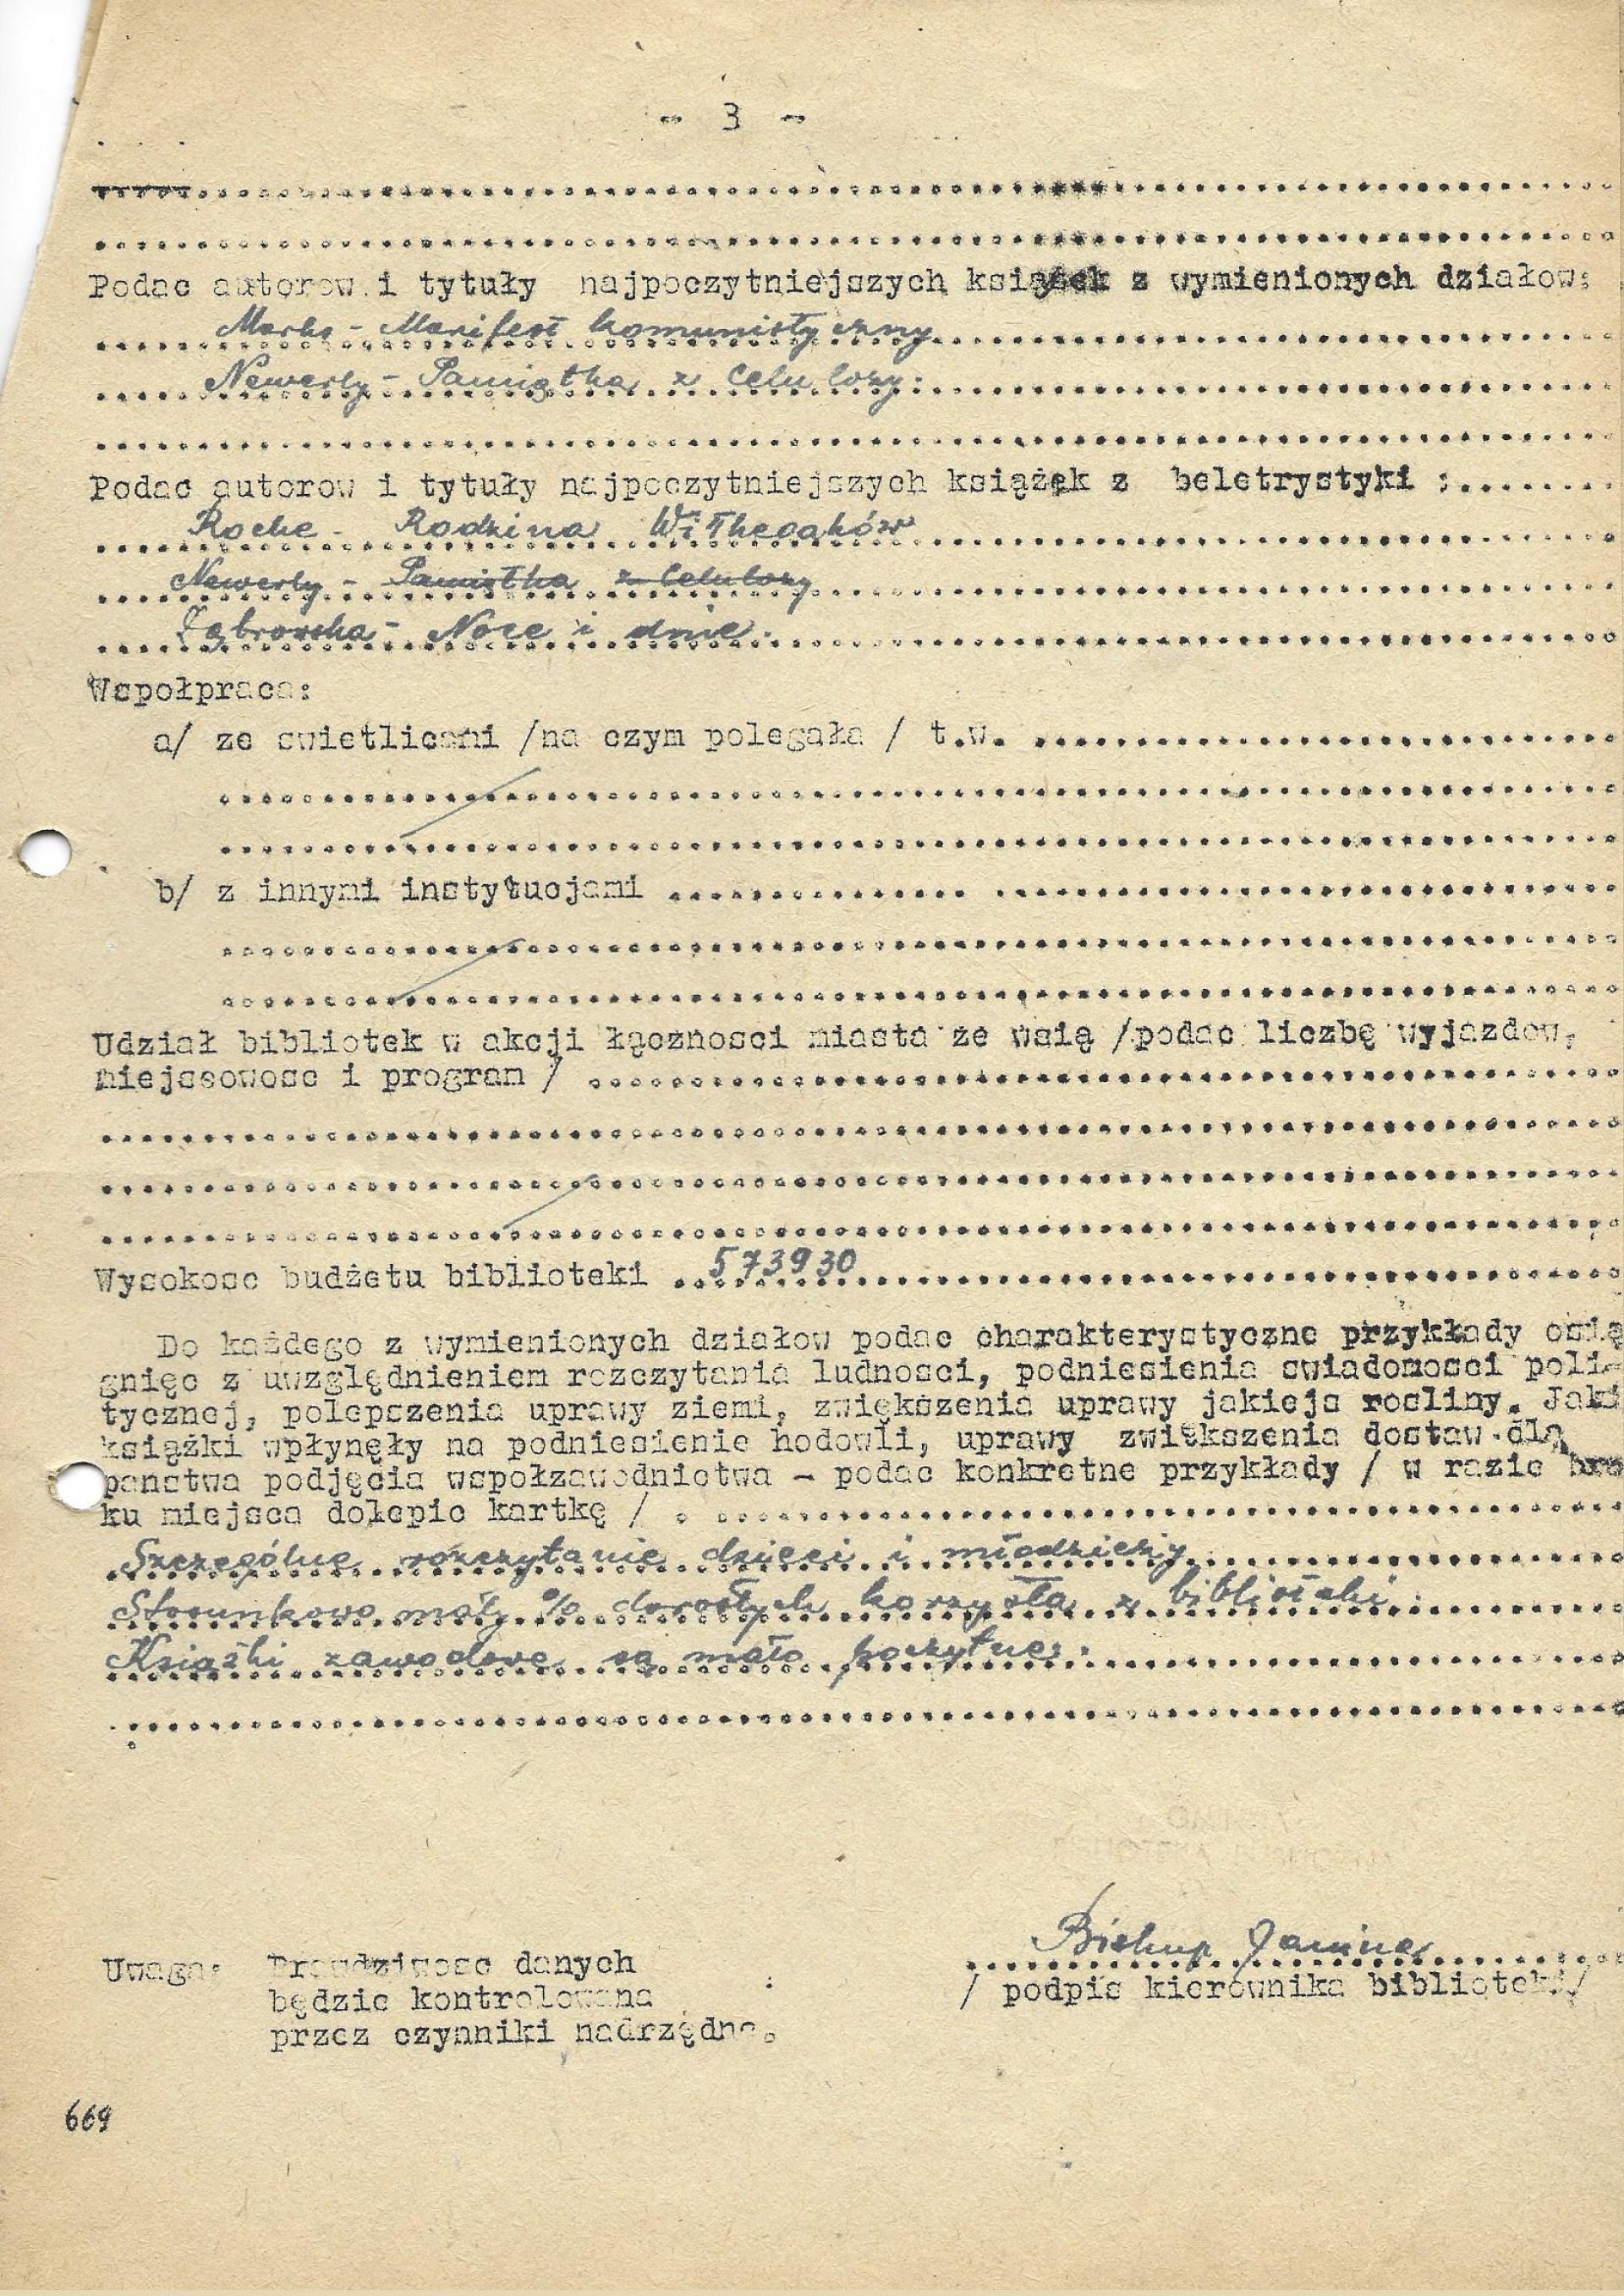 - 3 -
Podac autorow i tytuły najpoczytniejszych książek z wymienionych działow:
Marks - Manifest komunistyczny
Newerly - Pamiątka z Celulozy.
Podac autorow i tytuły najpoczytniejszych książek z beletrystyki :.......
Roche - Rodzina Withecaków
Newerly - Pamiątka z Celulozy
Dąbrowska - Noce i dnie.
Wspołpraca:
a/ ze swietlicami /na czym polegała / t.w. ..............................
b/ z innymi instytucjami ..............................
Udział bibliotek w akcji łącznosci miasta ze wsią /podac liczbę wyjazdow,
miejscowosc i program / ..............................
Wysokosc budżetu biblioteki 573930
Do każdego z wymienionych działow podac charakterystyczne przykłady osią
gnięc z uwzględnieniem rozczytania ludnosci, podniesienia swiadomosci poli-
tycznej, polepszenia uprawy ziemi, zwiększenia uprawy jakiejs rosliny. Jaki
książki wpłynęły na podniesienie hodowli, uprawy zwiększenia dostaw dla
panstwa podjęcia wspołzawodnictwa - podac konkretne przykłady / w razie bra
ku miejsca dolepic kartkę / . ..............................
Szczególne rozczytanie dzieci i młodzieży
Stosunkowo mały % dorosłych korzysta z biblioteki.
Książki zawodowe są mało poczytne.
Biskup Janina
Uwaga: Prawdziwosc danych
/ podpis kierownika biblioteki/
będzie kontrolowana
przez czynniki nadrzędne.
669